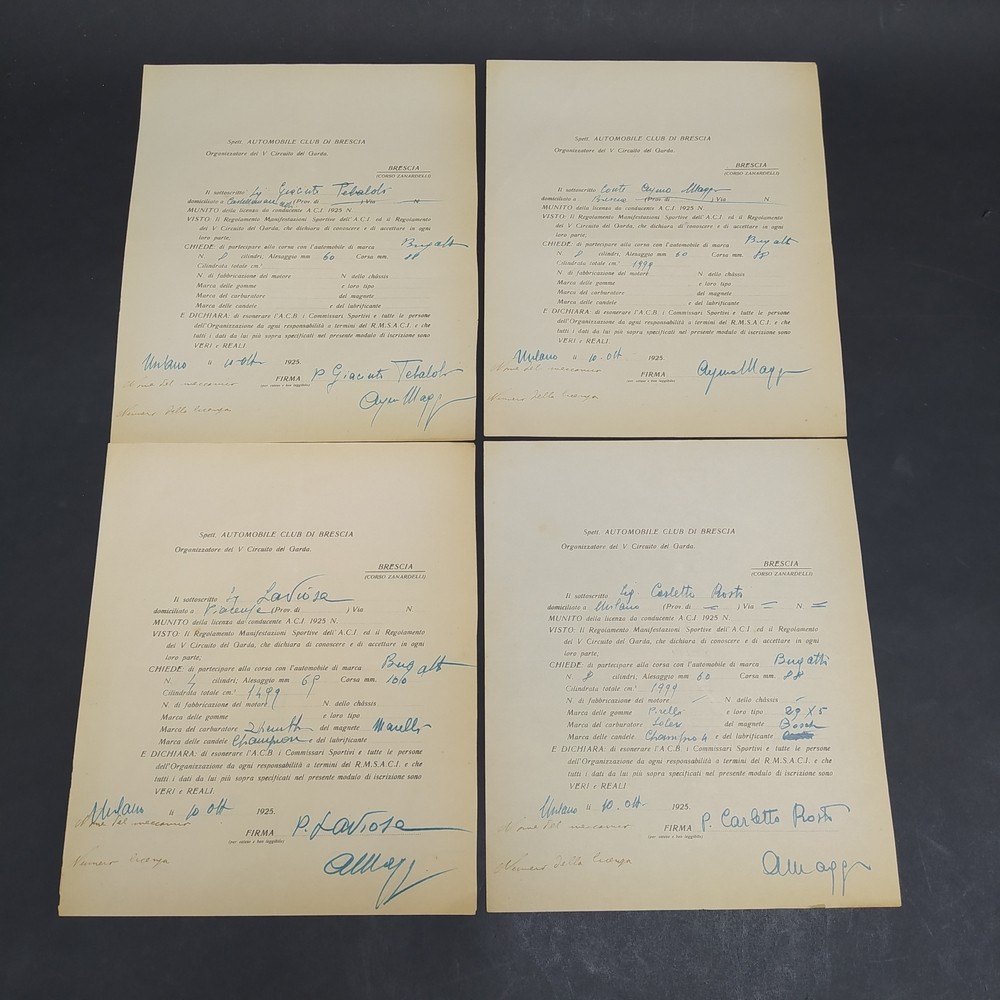 Spett. AUTOMOBILE CLUB DI BRESCIA
Organizzatore del V Circuito del Garda.
BRESCIA
(CORSO ZANARDELLI)
Il sottoscritto Sig Giacinto Tebaldi
domiciliato a (Prov. di ) Via N
MUNITO della licenza da conducente A.C.I 1925 N.
VISTO: Il Regolamento Manifestazioni Sportive dell'A.C.I. ed il Regolamento
del V Circuito del Garda, che dichiara di conoscere e di accettare in ogni
loro parte;
CHIEDE: di partecipare alla corsa con l'automobile di marca Bugatti
N. 8 cilindri, Alesaggio mm 60 Corsa mm. 88
Cilindrata totale cm.³
N. di fabbricazione del motore N dello châssis
Marca delle gomme e loro tipo
Marca del carburatore del magnete
Marca delle candele e del lubrificante
E DICHIARA: di esonerare l'A.C.B. i Commissari Sportivi e tutte le persone
dell'Organizzazione da ogni responsabilità a termini del R.M.S.A.C.I. e che
tutti i dati da lui più sopra specificati nel presente modulo di iscrizione sono
VERI e REALI.
Milano li 10 Ott 1925.
Nome del meccanico
FIRMA P Giacinto Tebaldi
Aymo Maggi
Numero della licenza
Spett. AUTOMOBILE CLUB DI BRESCIA
Organizzatore del V Circuito del Garda.
BRESCIA
(CORSO ZANARDELLI)
Il sottoscritto Conte Aymo Maggi
domiciliato a Brescia (Prov. di ) Via N
MUNITO della licenza da conducente A.C.I 1925 N.
VISTO: Il Regolamento Manifestazioni Sportive dell'A.C.I. ed il Regolamento
del V Circuito del Garda, che dichiara di conoscere e di accettare in ogni
loro parte;
CHIEDE: di partecipare alla corsa con l'automobile di marca Bugatti
N. 8 cilindri, Alesaggio mm 60 Corsa mm. 88
Cilindrata totale cm.³ 1999
N. di fabbricazione del motore N. dello châssis
Marca delle gomme e loro tipo
Marca del carburatore del magnete
Marca delle candele e del lubrificante
E DICHIARA: di esonerare l'A.C.B. i Commissari Sportivi e tutte le persone
dell'Organizzazione da ogni responsabilità a termini del R.M.S.A.C.I. e che
tutti i dati da lui più sopra specificati nel presente modulo di iscrizione sono
VERI e REALI.
Milano li 10. Ott 1925.
Nome del meccanico
FIRMA Aymo Maggi
Numero della licenza
Spett. AUTOMOBILE CLUB DI BRESCIA
Organizzatore del V Circuito del Garda.
BRESCIA
(CORSO ZANARDELLI)
Il sottoscritto Sig LaViosa
domiciliato a Piacenza (Prov. di ) Via N
MUNITO della licenza da conducente A.C.I 1925 N.
VISTO: Il Regolamento Manifestazioni Sportive dell'A.C.I. ed il Regolamento
del V Circuito del Garda, che dichiara di conoscere e di accettare in ogni
loro parte;
CHIEDE: di partecipare alla corsa con l'automobile di marca Bugatti
N. 4 cilindri, Alesaggio mm 69 Corsa mm. 100
Cilindrata totale cm.³ 1499
N di fabbricazione del motore N dello châssis
Marca delle gomme e loro tipo
Marca del carburatore Zenith del magnete Marelli
Marca delle candele Champion e del lubrificante
E DICHIARA: di esonerare l'A.C.B. i Commissari Sportivi e tutte le persone
dell'Organizzazione da ogni responsabilità a termini del R.M.S.A.C.I. e che
tutti i dati da lui più sopra specificati nel presente modulo di iscrizione sono
VERI e REALI.
Milano li 10 Ott 1925.
Nome del meccanico
FIRMA P. LaViosa
AMaggi
Numero licenza
Spett. AUTOMOBILE CLUB DI BRESCIA
Organizzatore del V Circuito del Garda.
BRESCIA
(CORSO ZANARDELLI)
Il sottoscritto Sig Carletto Rosti
domiciliato a Milano (Prov. di ) Via N
MUNITO della licenza da conducente A.C.I 1925 N.
VISTO: Il Regolamento Manifestazioni Sportive dell'A.C.I. ed il Regolamento
del V Circuito del Garda, che dichiara di conoscere e di accettare in ogni
loro parte;
CHIEDE: di partecipare alla corsa con l'automobile di marca Bugatti
N. 8 cilindri, Alesaggio mm 60 Corsa mm. 88
Cilindrata totale cm.³ 1999
N di fabbricazione del motore N. dello châssis
Marca delle gomme Pirelli e loro tipo 29 X 5
Marca del carburatore Solex del magnete Bosch
Marca delle candele Champion e del lubrificante
E DICHIARA: di esonerare l'A.C.B. i Commissari Sportivi e tutte le persone
dell'Organizzazione da ogni responsabilità a termini del R.M.S.A.C.I. e che
tutti i dati da lui più sopra specificati nel presente modulo di iscrizione sono
VERI e REALI.
Milano li 10. Ott. 1925.
Nome del meccanico
FIRMA P. Carletto Rosti
AMaggi
Numero della licenza